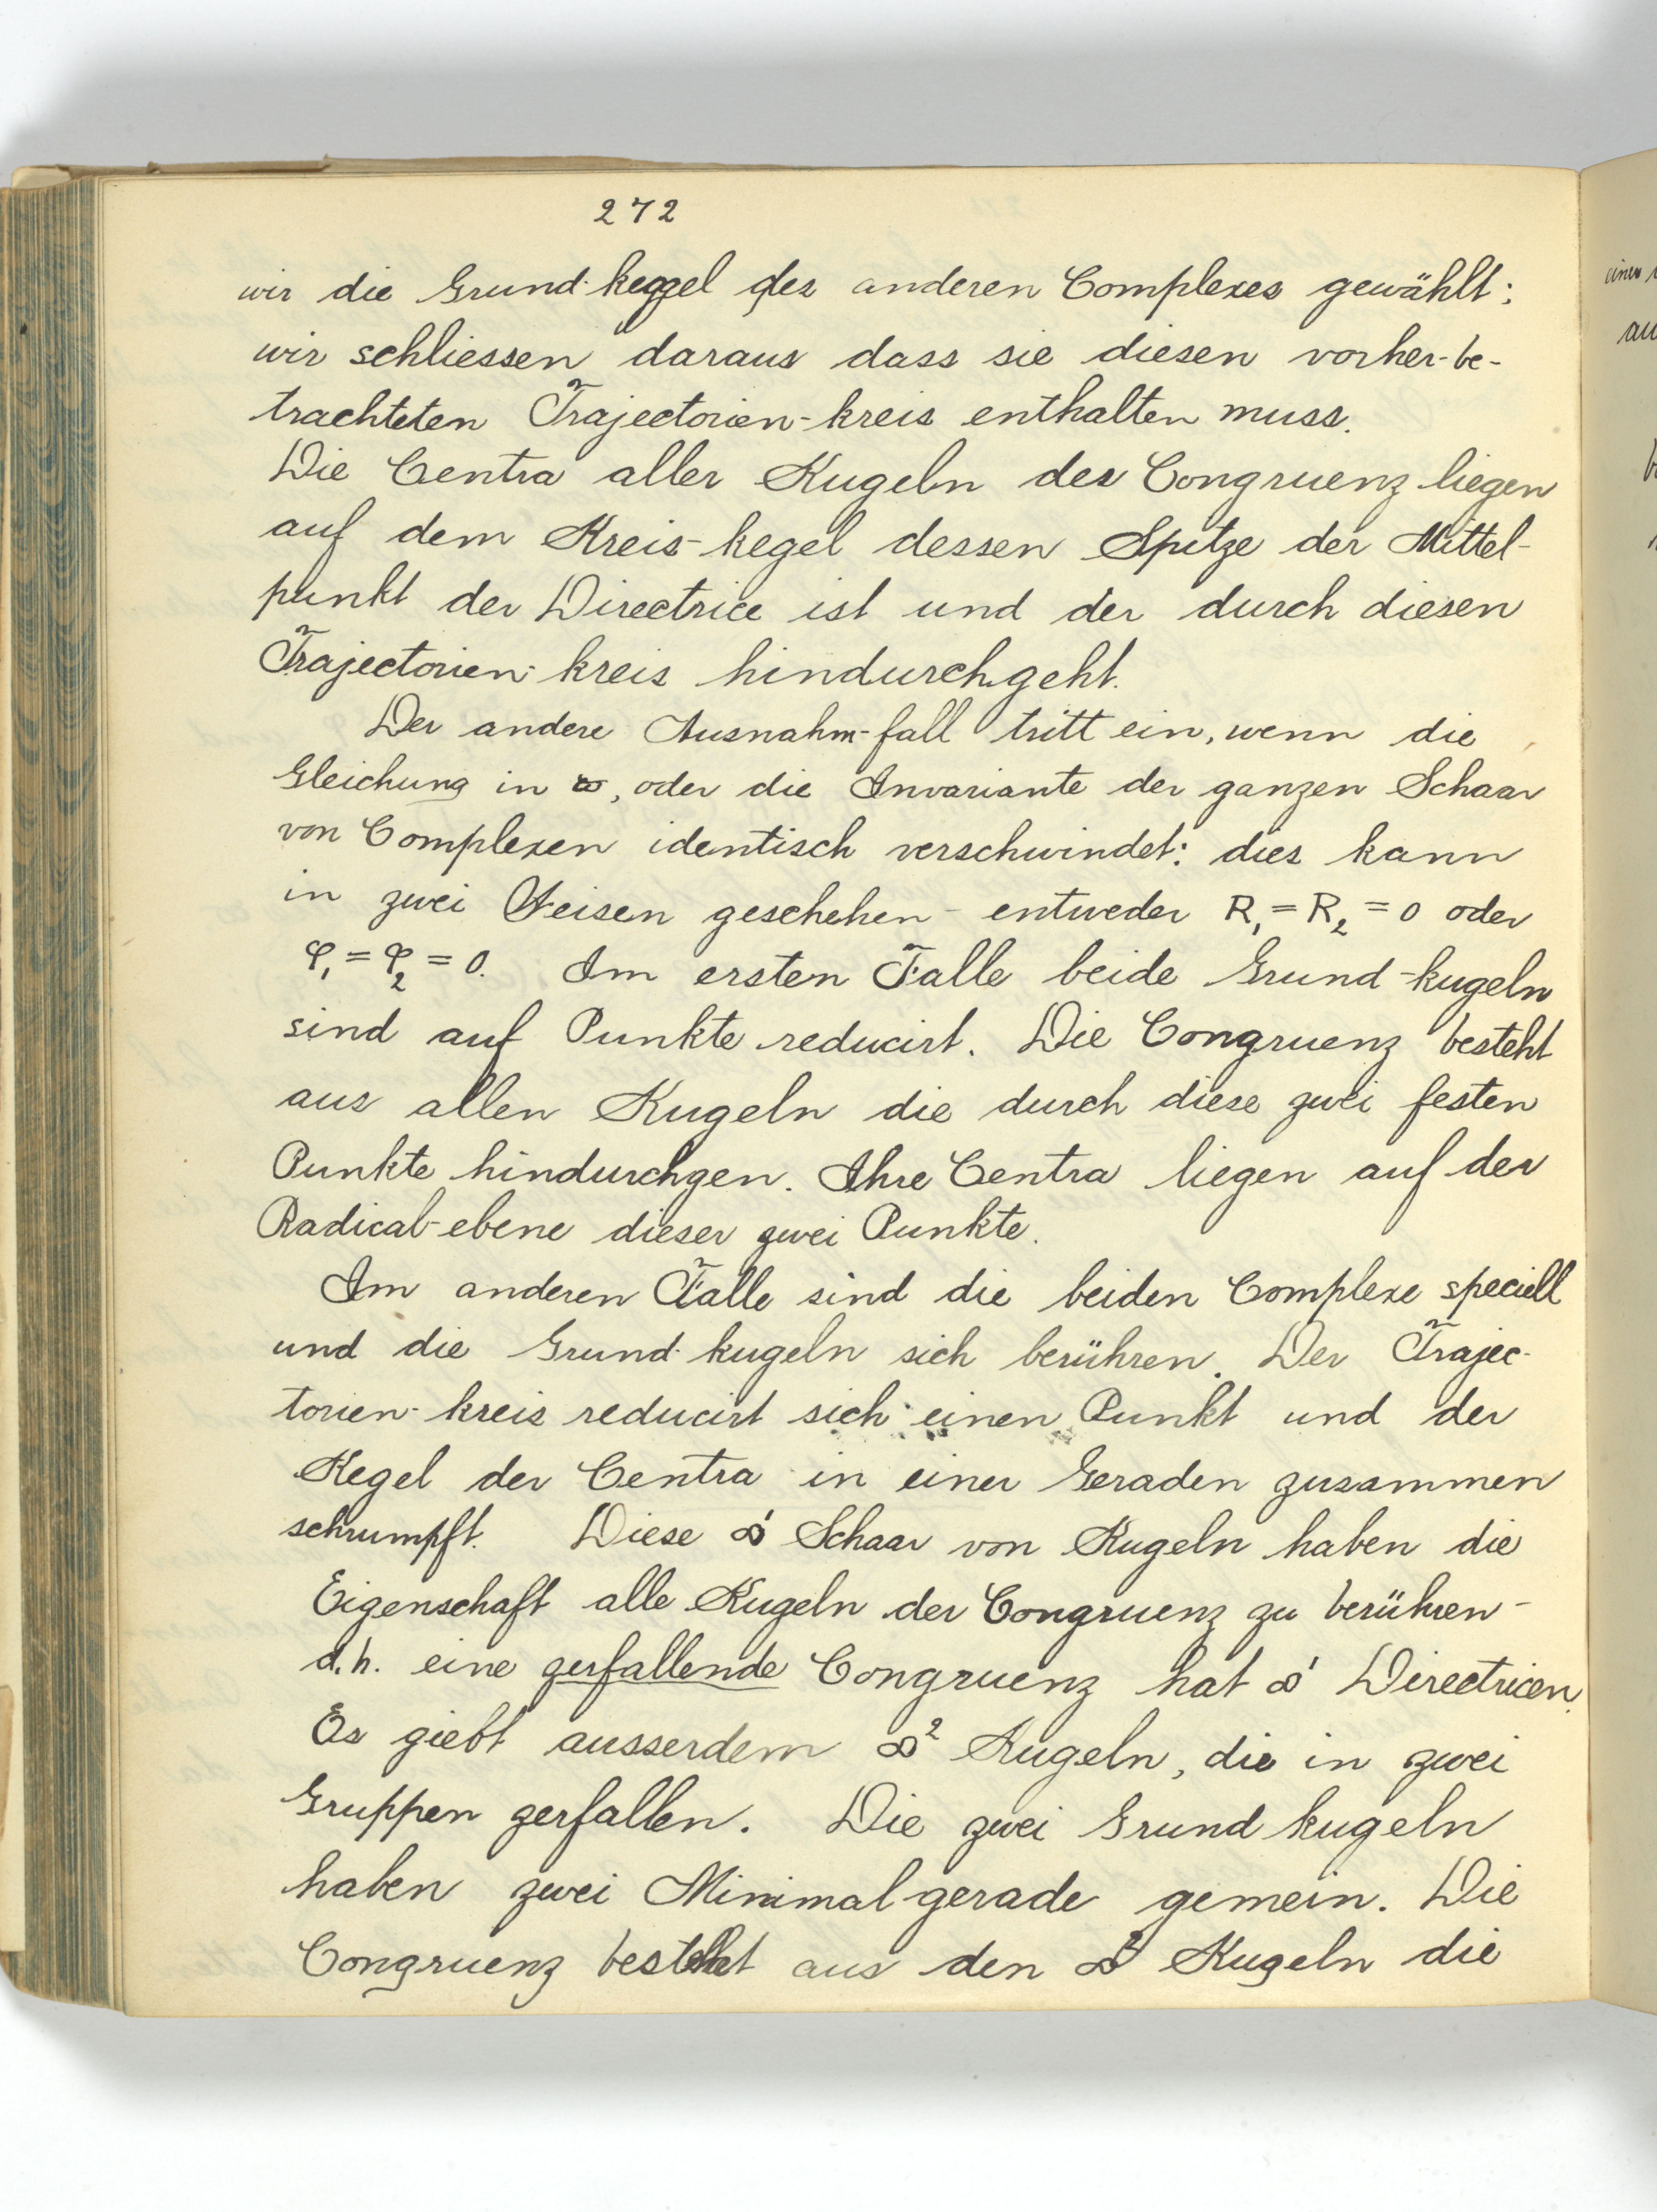 272
wir die Grund-keggel des anderen Complexes gewählt;
wir schliessen daraus dass sie diesen vorher-be-
trachteten Trajectorien-kreis enthalten muss.
Die Centra aller Kugeln der Congruenz liegen
auf dem Kreis-kegel dessen Spitze der Mittel-
punkt der Directrice ist und der durch diesen
Trajectorien-kreis hindurchgeht.
Der andere Ausnahm-fall tritt ein, wenn die
Gleichung in , oder die Invariante der ganzen Schaar
von Complexen identisch verschwindet: dies kann
in zwei Weisen geschehen - entweder R₁ = R₂ = 0 oder
φ₁ = φ₂ = 0. Im ersten Falle beide Grund-kugeln
sind auf Punkte reducirt. Die Congruenz besteht
aus allen Kugeln die durch diese zwei festen
Punkte hindurchgen. Ihre Centra liegen auf der
Radical-ebene dieser zwei Punkte.
Im anderen Falle sind die beiden Complexe speciell
und die Grund-kugeln sich berühren. Der Trajec-
torien-kreis reducirt sich einen Punkt und der
Kegel der Centra in einer Geraden zusammen
schrumpft. Diese ∞¹ Schaar von Kugeln haben die
Eigenschaft alle Kugeln der Congruenz zu berühren -
d.h. eine zerfallende Congruenz hat ∞¹ Directricen.
Es giebt ausserdem ∞² Kugeln, die in zwei
Gruppen zerfallen. Die zwei Grund kugeln
haben zwei Minimal-gerade gemein. Die
Congruenz besteht aus den ∞² Kugeln die
einen
au